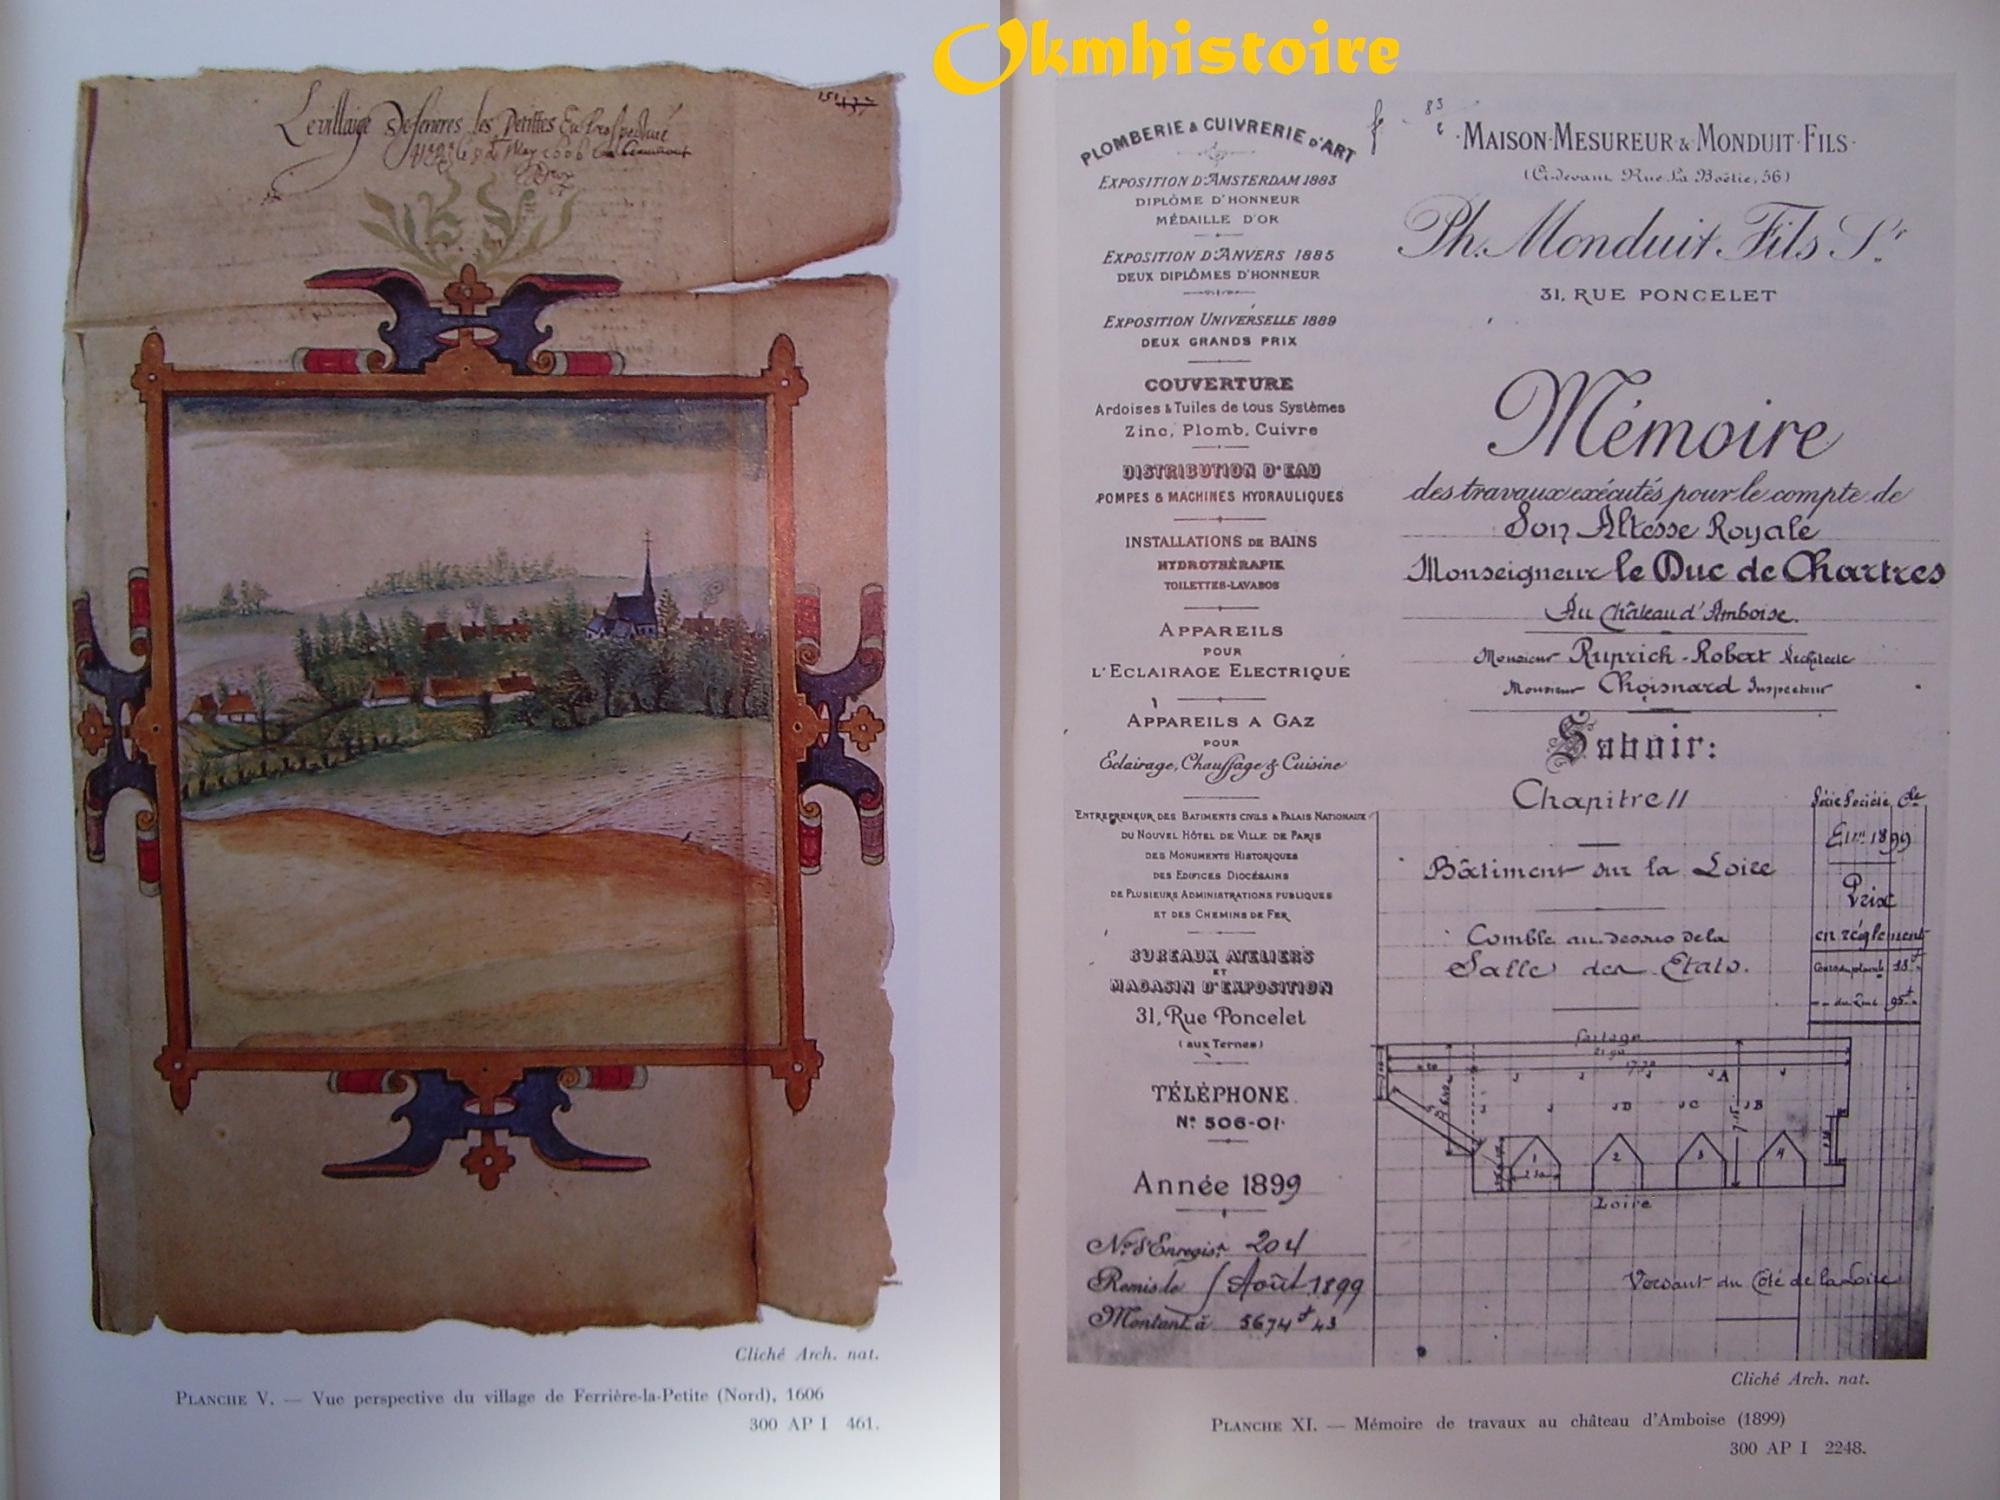 Okmhistoire
Le villaige De ferieres les Petittes En
le 8 de May 1606
Cliché Arch. nat.
PLANCHE V. — Vue perspective du village de Ferrière-la-Petite (Nord), 1606
300 AP I 461.
PLOMBERIE & CUIVRERIE D'ART
EXPOSITION D'AMSTERDAM 1883
DIPLÔME D'HONNEUR
MÉDAILLE D'OR
EXPOSITION D'ANVERS 1885
DEUX DIPLÔMES D'HONNEUR
EXPOSITION UNIVERSELLE 1889
DEUX GRANDS PRIX
COUVERTURE
Ardoises & Tuiles de tous Systèmes
Zinc, Plomb, Cuivre
DISTRIBUTION D'EAU
POMPES & MACHINES HYDRAULIQUES
INSTALLATIONS DE BAINS
HYDROTHÉRAPIE
TOILETTES-LAVABOS
APPAREILS
POUR
L'ECLAIRAGE ELECTRIQUE
APPAREILS A GAZ
POUR
Eclairage, Chauffage & Cuisine
ENTREPRENEUR DES BATIMENTS CIVILS & PALAIS NATIONAUX
DU NOUVEL HÔTEL DE VILLE DE PARIS
DES MONUMENTS HISTORIQUES
DES EDIFICES DIOCÉSAINS
DE PLUSIEURS ADMINISTRATIONS PUBLIQUES
ET DES CHEMINS DE FER
BUREAUX ATELIERS
ET
MAGASIN D'EXPOSITION
31, Rue Poncelet
(aux Ternes)
TÉLÉPHONE
No 506-01
Année 1899
No d'Enregist. 204
Remis le Août 1899
Montant à 5674 f 43
MAISON-MESUREUR & MONDUIT-FILS
(Ci-devant Rue La Boëtie, 56)
Ph. Monduit Fils Sr.
31, RUE PONCELET
Mémoire
des travaux exécutés pour le compte de
Son Altesse Royale
Monseigneur le Duc de Chartres
Au Château d'Amboise.
Monsieur Ruprich-Robert Architecte
Monsieur Choisnard Inspecteur
Savoir:
Chapitre II
Série Société Cle
Eon 1899
Bâtiment sur la Loire
Prix
en réglement
Comble au dessus de la
Salle des Etats.
faitage
A
D C B
1 2 3 4
Loire
Versant du Côté de la Loire
Cliché Arch. nat.
PLANCHE XI. — Mémoire de travaux au château d'Amboise (1899)
300 AP I 2248.